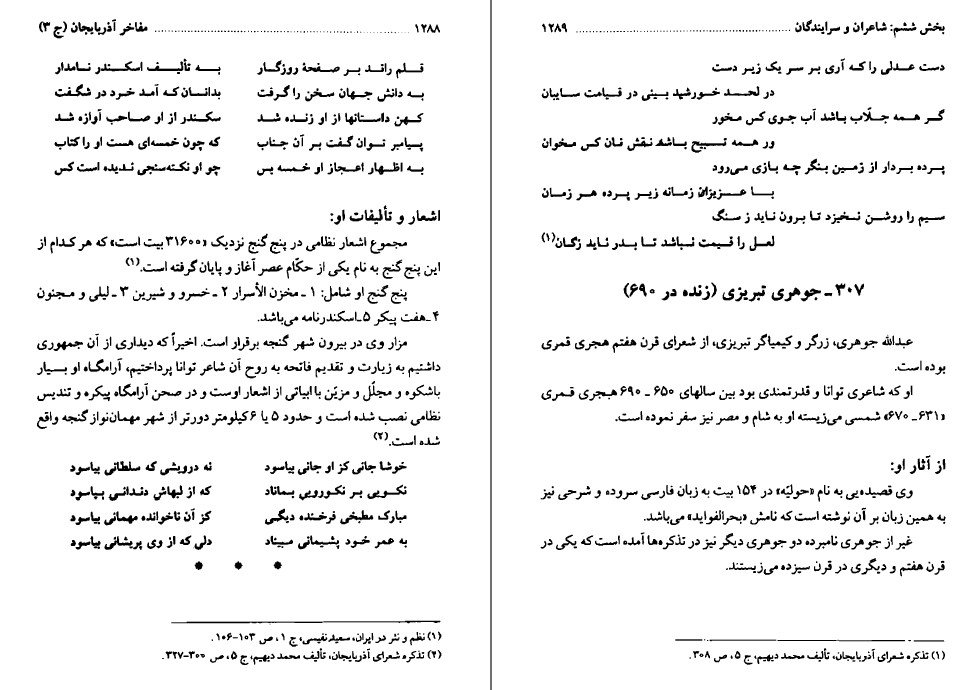 ۱۲۸۸ ........ مفاخر آذربایجان (ج ۳)
قلم راند بر صفحهٔ روزگار به تألیف اسکندر نامدار
به دانش جهان سخن را گرفت بدانسان که آمد خرد در شگفت
کهن داستانها از او زنده شد سکندر از او صاحب آوازه شد
پیامبر توان گفت بر آن جناب که چون خمسه‌ای هست او را کتاب
به اظهار اعجاز او خمسه بس چو او نکته‌سنجی ندیده است کس
اشعار و تألیفات او:
مجموع اشعار نظامی در پنج گنج نزدیک «۳۱۶۰۰ بیت است» که هر کدام از
این پنج گنج به نام یکی از حکّام عصر آغاز و پایان گرفته است.(۱)
پنج گنج او شامل: ۱ـ مخزن الأسرار ۲ـ خسرو و شیرین ۳ـ لیلی و مجنون
۴ـ هفت پیکر ۵ـ اسکندرنامه می‌باشد.
مزار وی در بیرون شهر گنجه برقرار است. اخیراً که دیداری از آن جمهوری
داشتیم به زیارت و تقدیم فاتحه به روح آن شاعر توانا پرداختیم، آرامگاه او بسیار
باشکوه و مجلّل و مزیّن با ابیاتی از اشعار اوست و در صحن آرامگاه پیکره و تندیس
نظامی نصب شده است و حدود ۵ یا ۶ کیلومتر دورتر از شهر مهمان‌نواز گنجه واقع
شده است.(۲)
خوشا جانی کز او جانی بیاسود نه درویشی که سلطانی بیاسود
نکویی بر نکورویی بماناد که از لبهاش دندانی بیاسود
مبارک مطبخی فرخنده دیگی کز آن ناخوانده مهمانی بیاسود
به عمر خود پشیمانی مبیناد دلی که از وی پریشانی بیاسود
* * *
(۱) نظم و نثر در ایران، سعید نفیسی، ج ۱، ص ۱۰۳-۱۰۶.
(۲) تذکره شعرای آذربایجان، تألیف محمد دیهیم، ج ۵، ص ۳۰۰-۳۲۷.
بخش ششم: شاعران و سرایندگان ........ ۱۲۸۹
دست عدلی را که آری بر سر یک زیر دست
در لحد خورشید بینی در قیامت سایبان
گر همه جلّاب باشد آب جوی کس مخور
ور همه تسبیح باشد نقش نان کس مخوان
پرده بردار از زمین بنگر چه بازی می‌رود
با عزیزان زمانه زیر پرده هر زمان
سیم را روشن نخیزد تا برون ناید ز سنگ
لعل را قیمت نباشد تا بدر ناید زکان(۱)
۳۰۷ـ جوهری تبریزی (زنده در ۶۹۰)
عبدالله جوهری، زرگر و کیمیاگر تبریزی، از شعرای قرن هفتم هجری قمری
بوده است.
او که شاعری توانا و قدرتمندی بود بین سالهای ۶۵۰ ـ ۶۹۰ هـجری قمری
«۶۳۱ـ ۶۷۰» شمسی می‌زیسته او به شام و مصر نیز سفر نموده است.
از آثار او:
وی قصیده‌یی به نام «حولیّه» در ۱۵۴ بیت به زبان فارسی سروده و شرحی نیز
به همین زبان بر آن نوشته است که نامش «بحرالفواید» می‌باشد.
غیر از جوهری نامبرده دو جوهری دیگر نیز در تذکره‌ها آمده است که یکی در
قرن هفتم و دیگری در قرن سیزده می‌زیستند.
(۱) تذکره شعرای آذربایجان، تألیف محمد دیهیم، ج ۵، ص ۳۰۸.